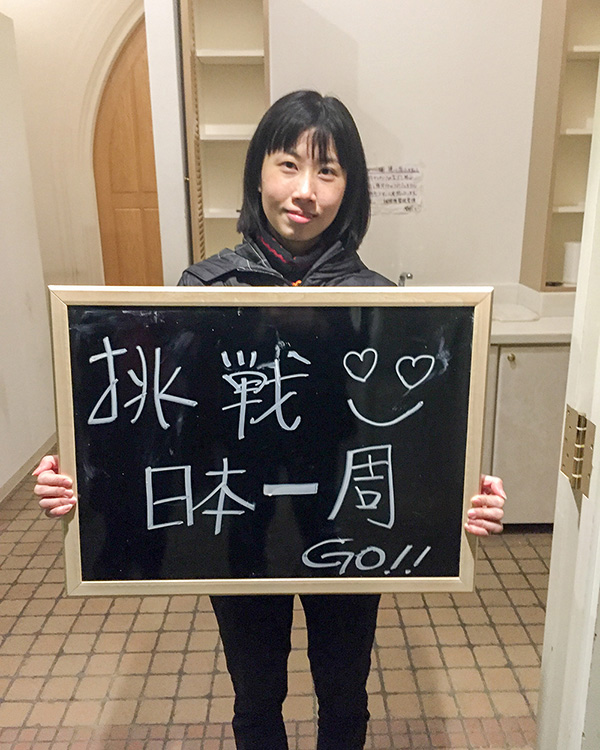 挑戦
日本一周
GO!!